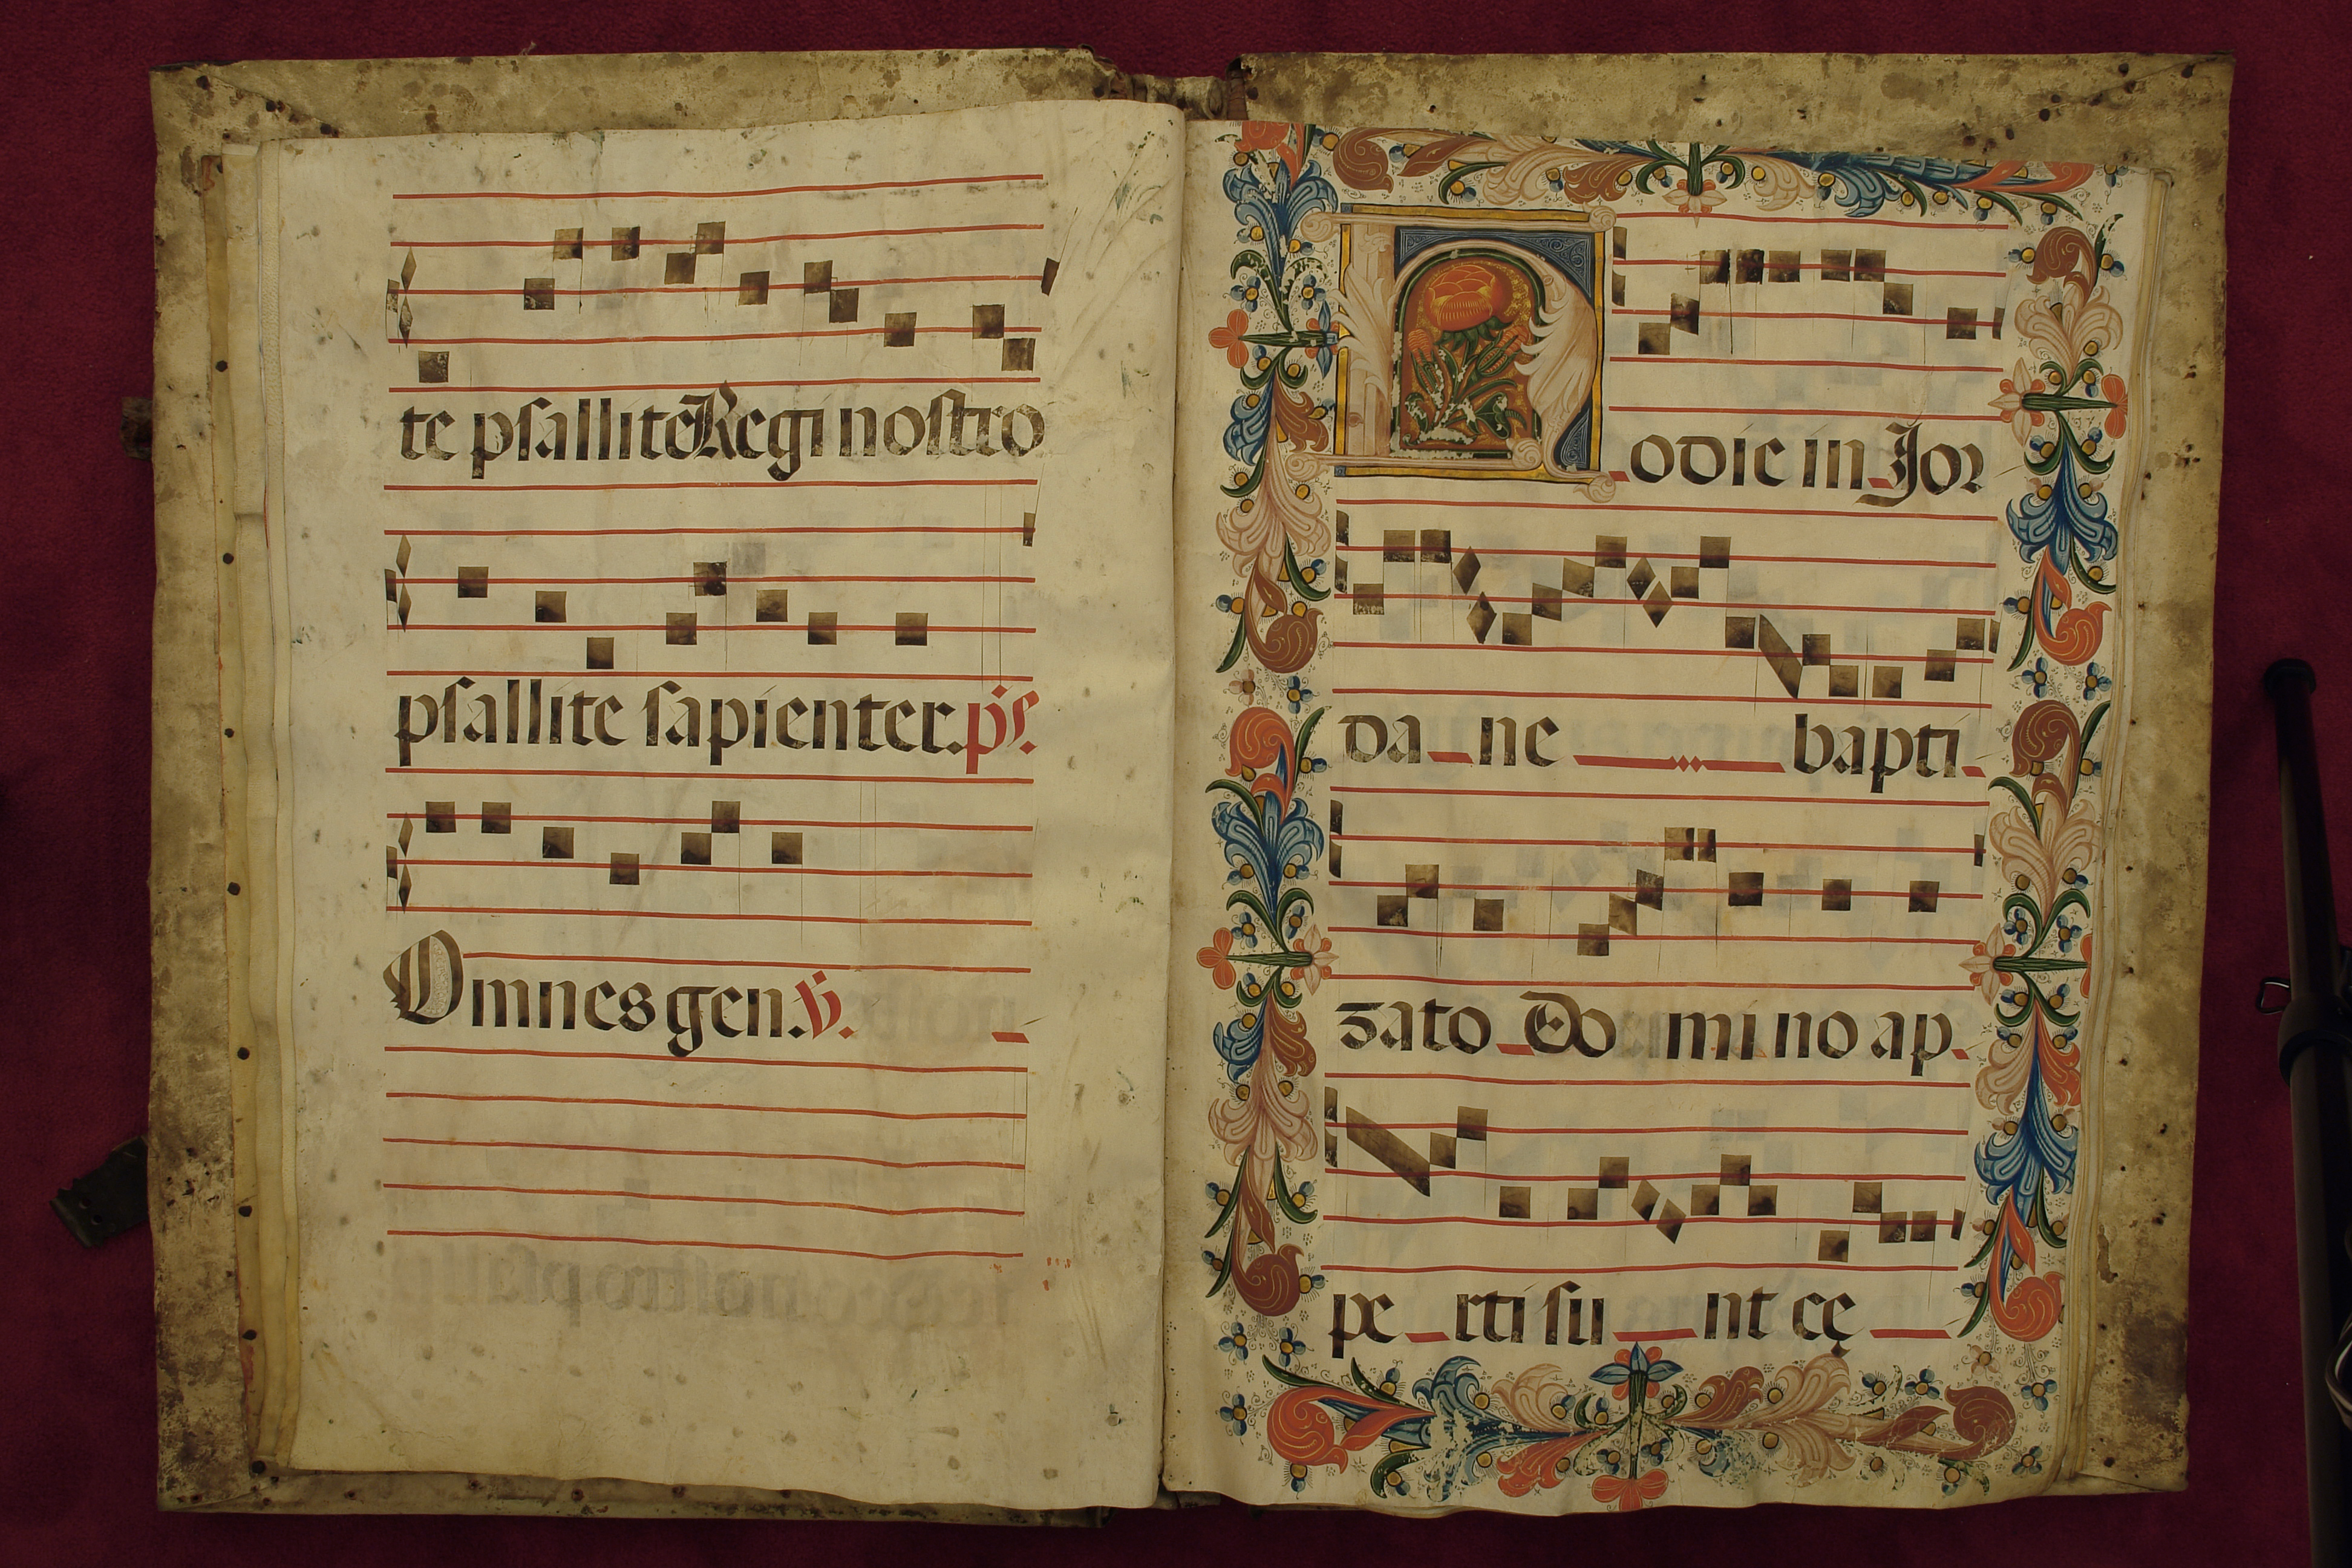 te psallite Regi nostro
psallite sapienter. ps.
Omnes gen. V.
Hodie in Jor
da ne bapti
zato Do mi no ap
pe rti su nt cę